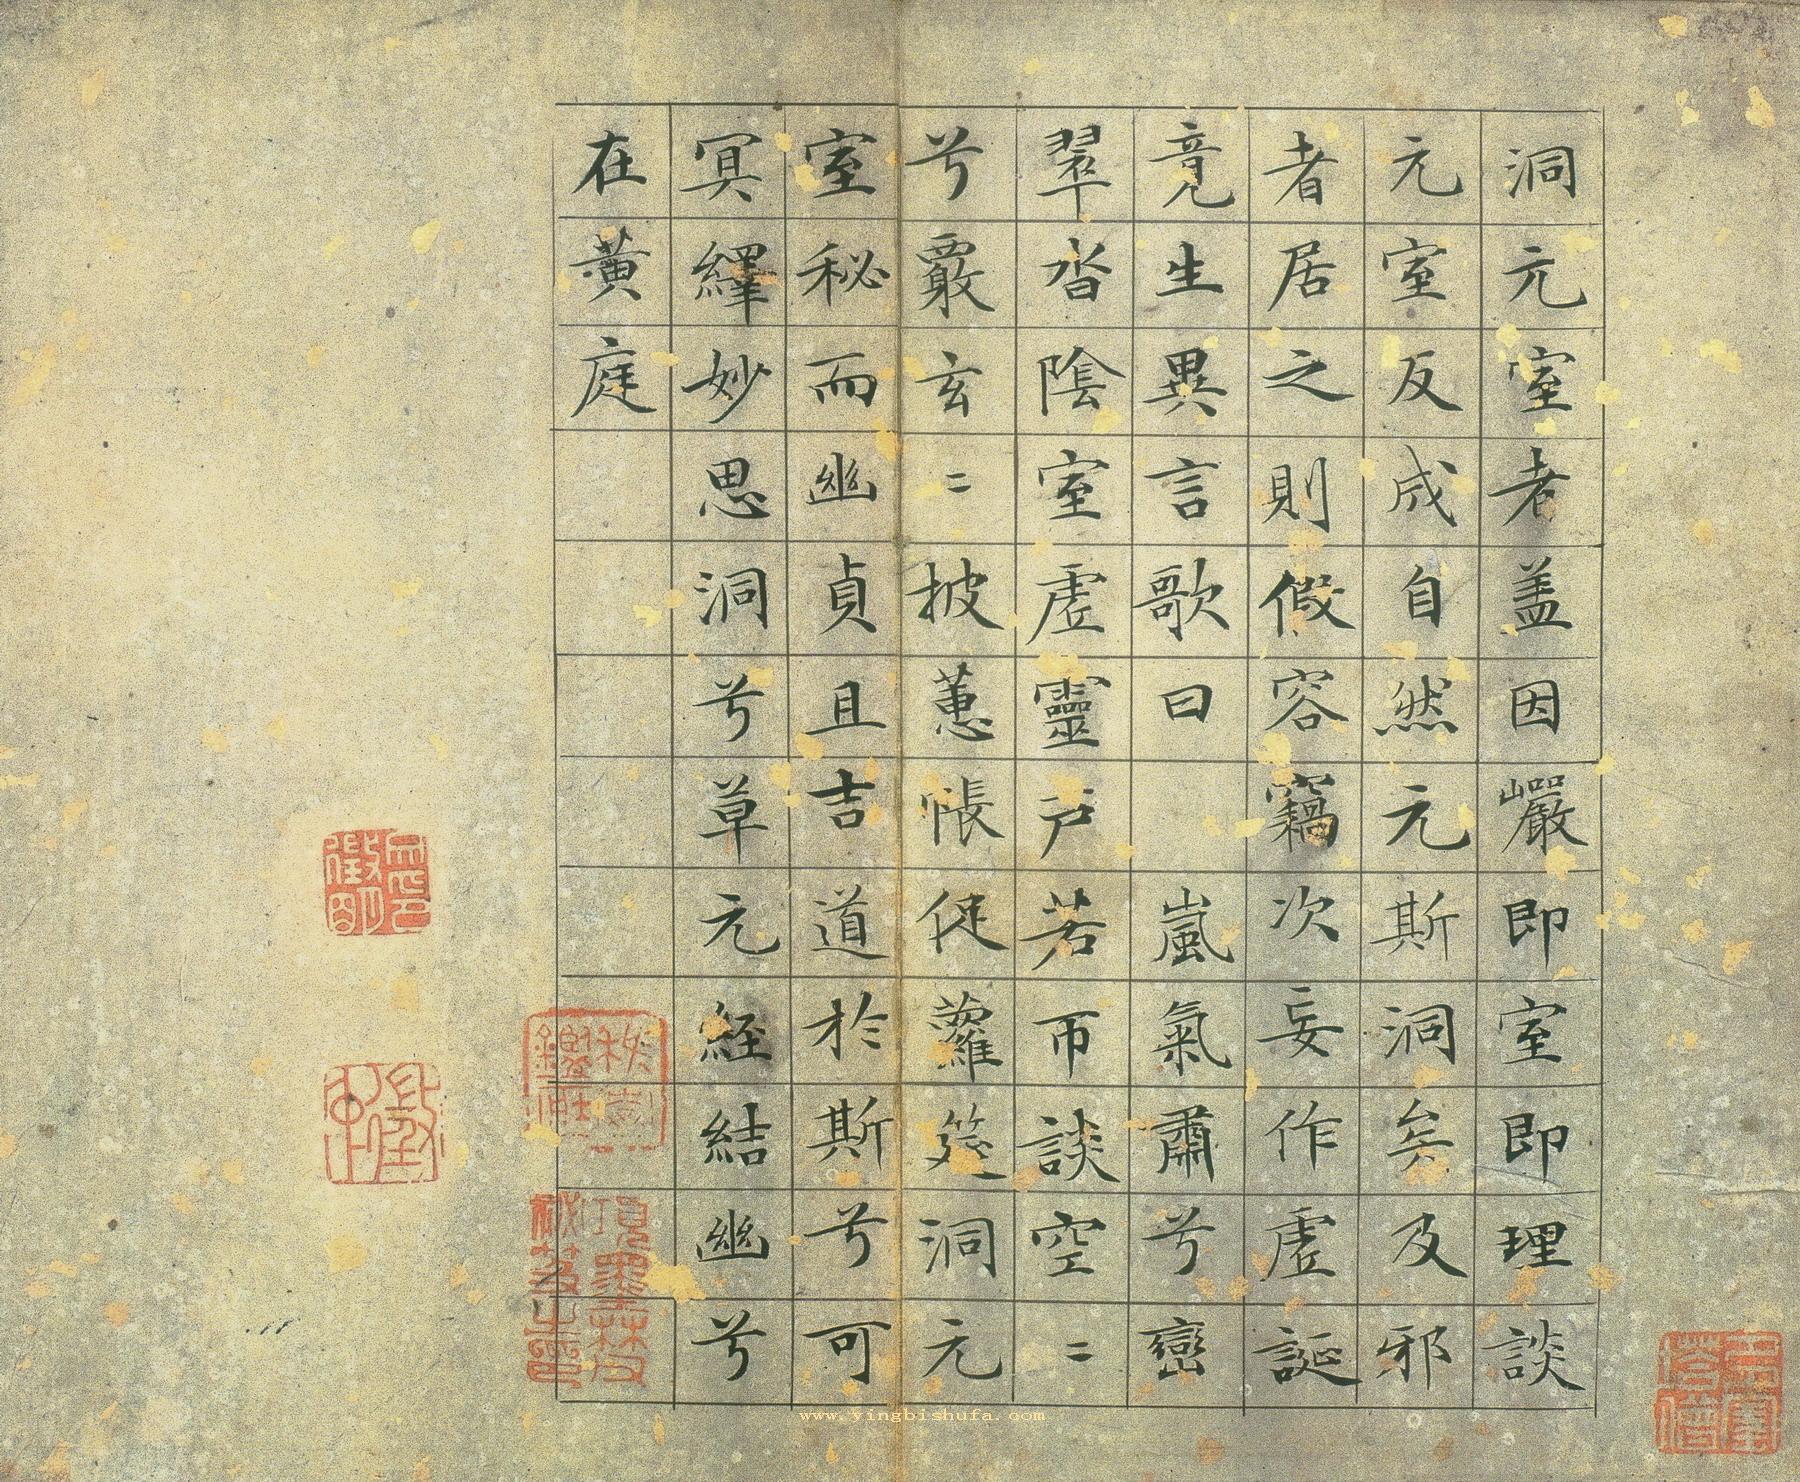 洞元室者盖因巗即室即理談
元室反成自然元斯洞矣及邪
者居之則假容竊次妄作虛誕
竟生異言歌曰　嵐氣肅兮巒
翠沓陰室虛靈戶若帀談空〻
兮覈玄〻披蕙帳促蘿筵洞元
室秘而幽貞且吉道於斯兮可
冥繹妙思洞兮草元經結幽兮
在黃庭
項墨林父
秘笈之印
www.yingbishufa.com